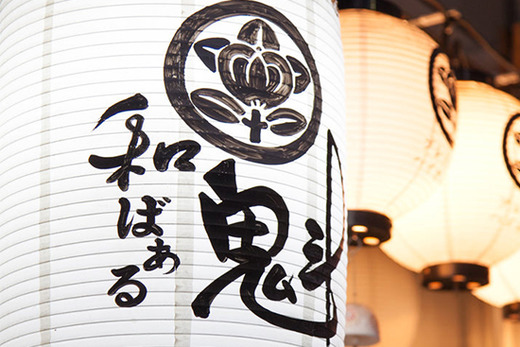 和ばぁる
魁